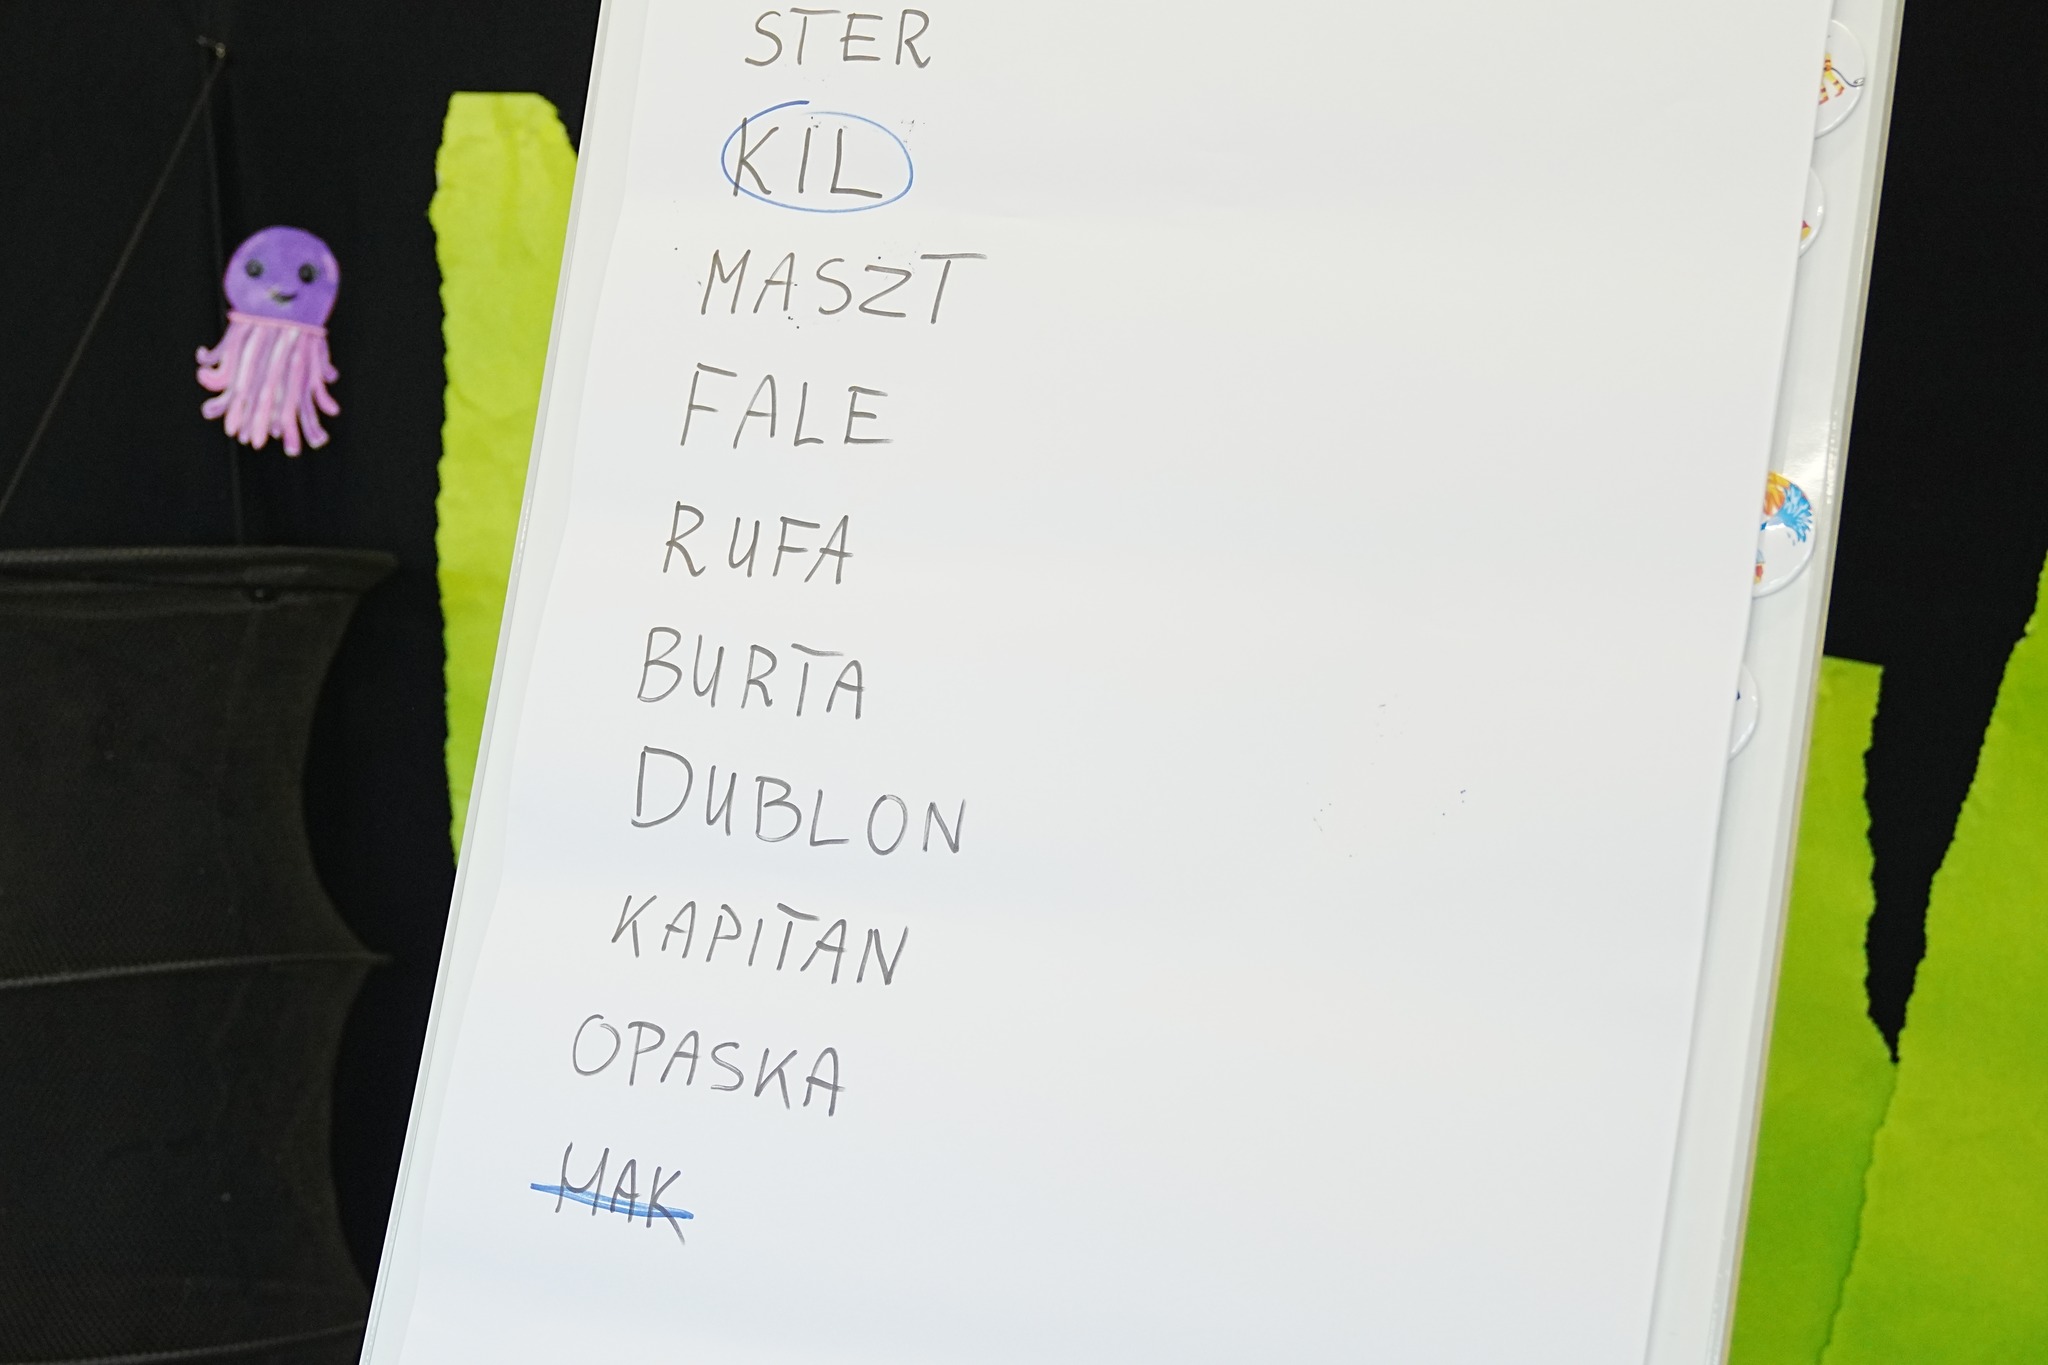 STER
KIL
MASZT
FALE
RUFA
BURTA
DUBLON
KAPITAN
OPASKA
MAK